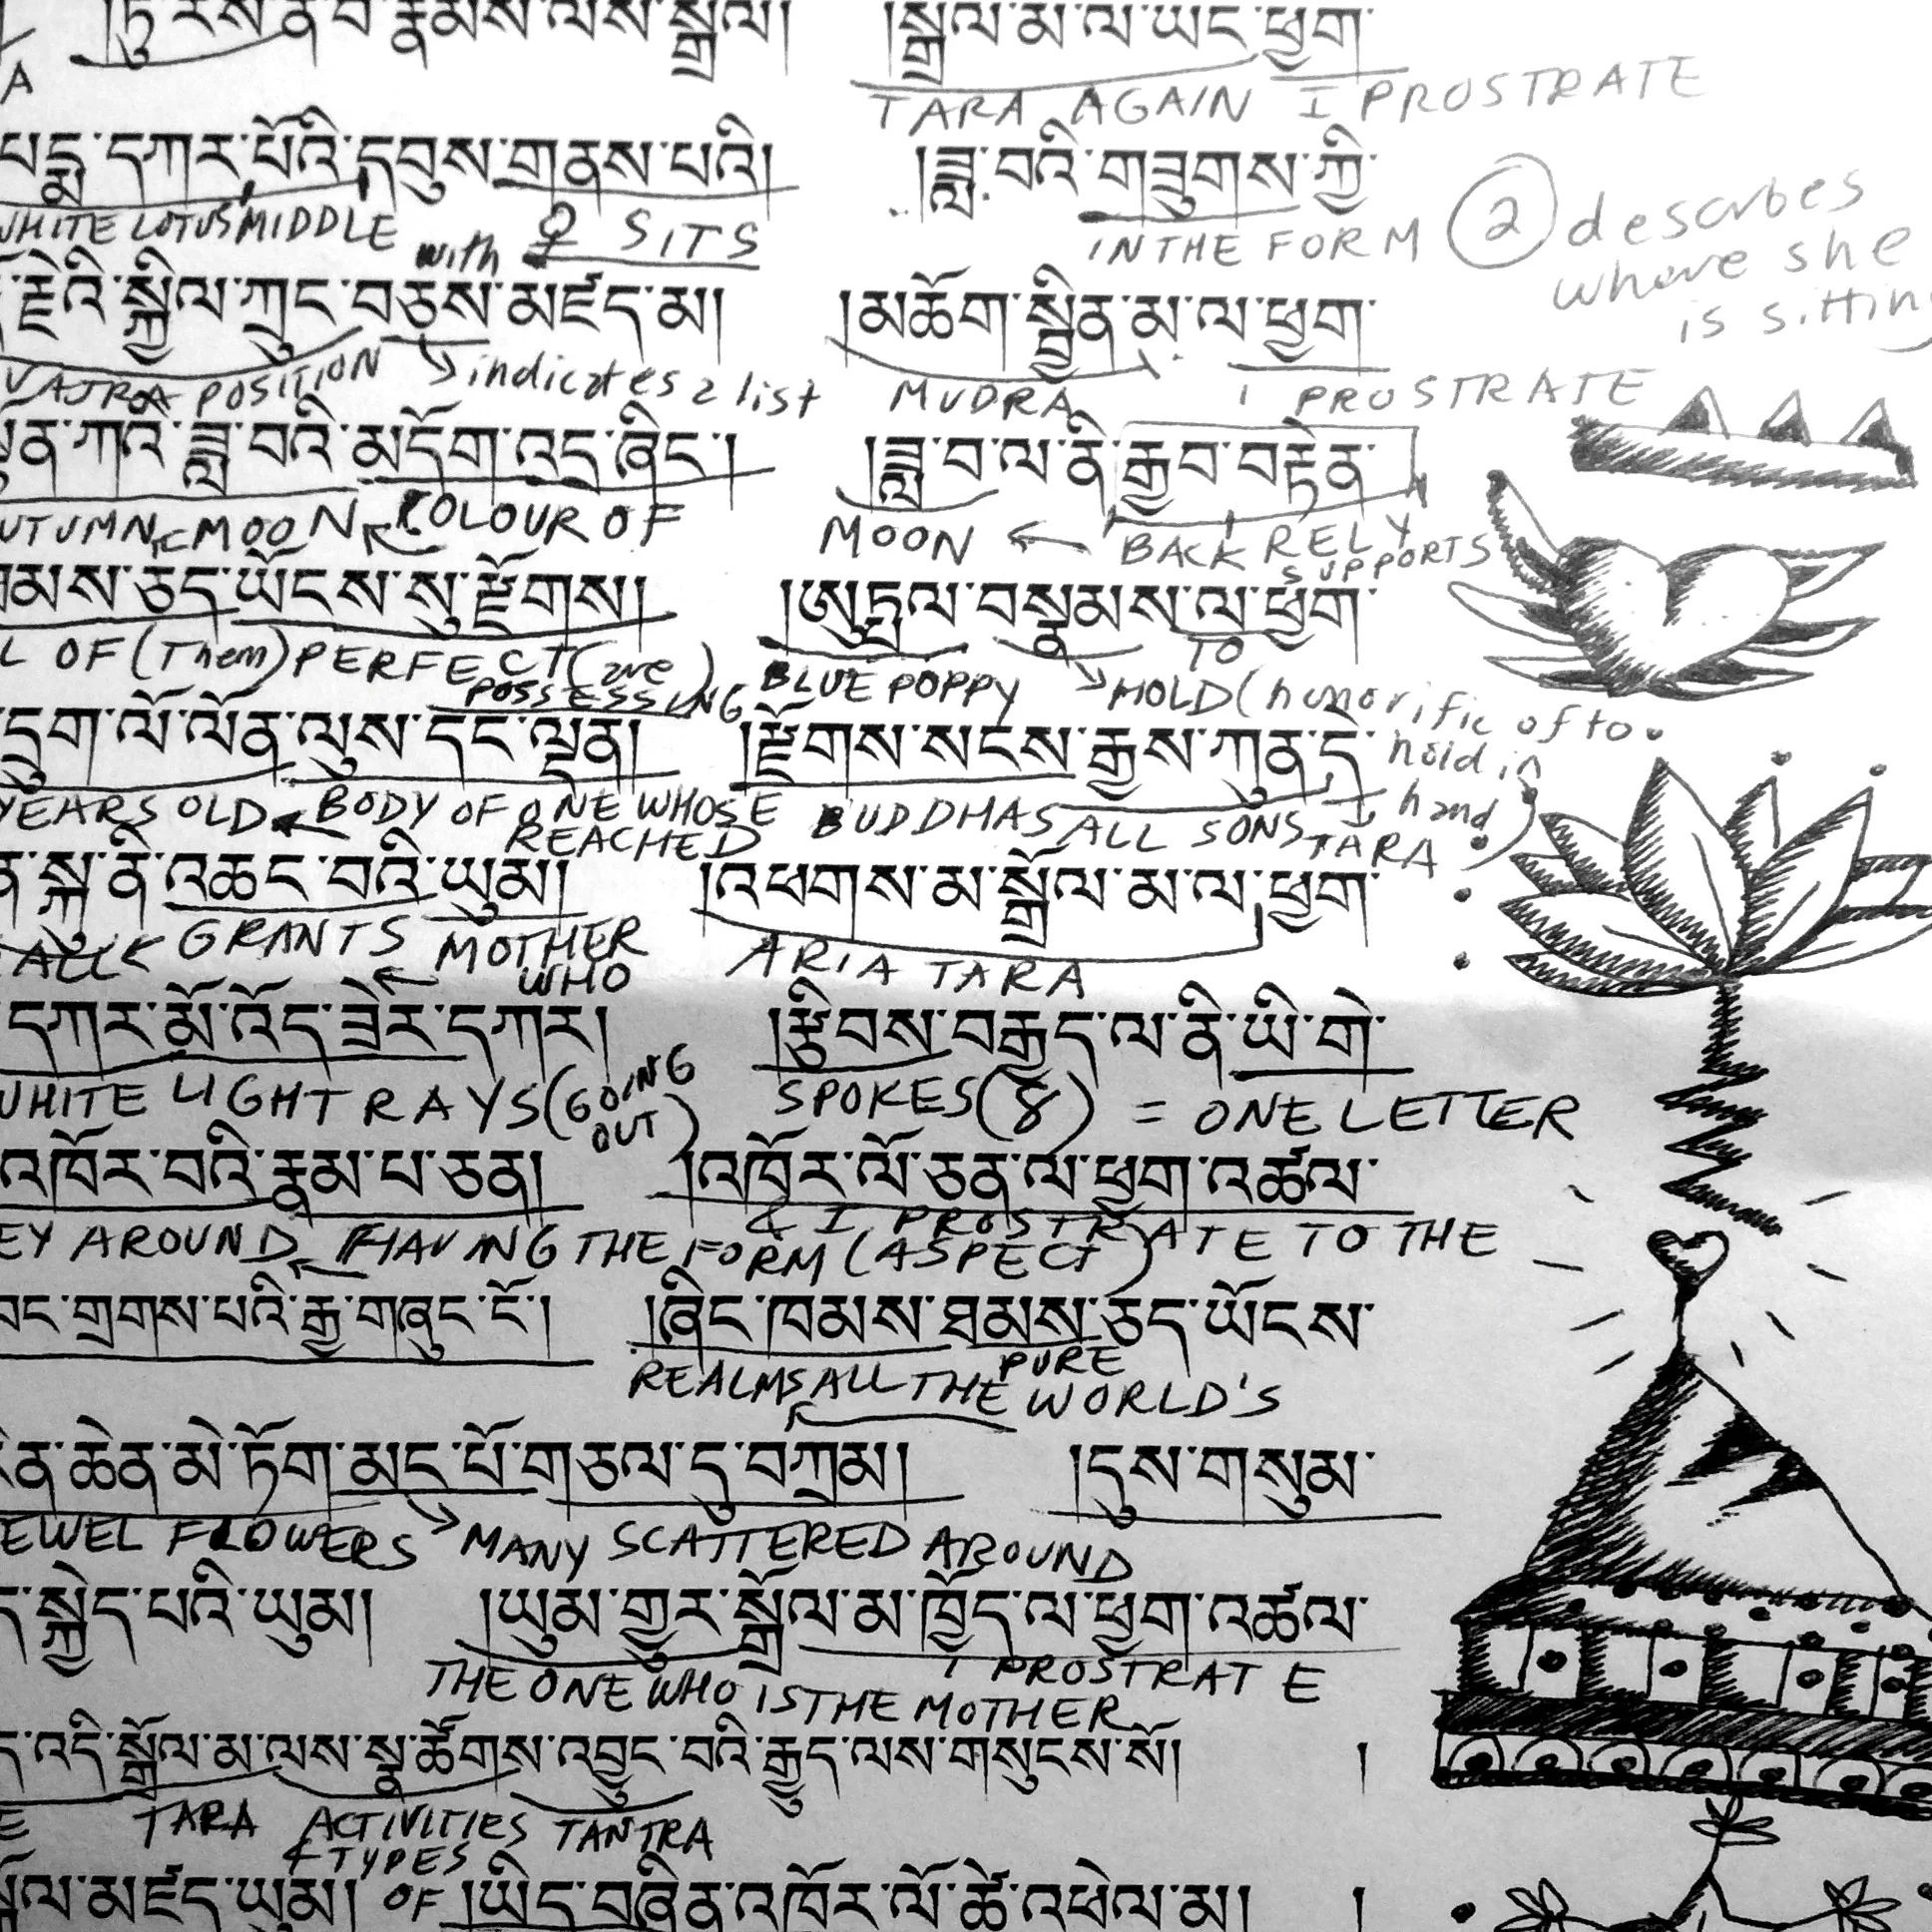 །སྒྲོལ་མ་ལ་ཡང་ཕྱག་
A
TARA AGAIN I PROSTRATE
པདྨ་དཀར་པོའི་དབུས་གནས་པའི། །ཟླ་བའི་གཟུགས་ཀྱི་
WHITE LOTUS MIDDLE with ♀ SITS IN THE FORM
② describes where she is sitting
རྗེའི་སྐྱིལ་ཀྲུང་བཅས་མཛད་མ། །མཆོག་སྦྱིན་མ་ལ་ཕྱག་
VAJRA POSITION ↘ indicates a list MUDRA I PROSTRATE
ཀའི་ཟླ་བའི་མདོག་འདྲ་ཞིང་། །ཟླ་བ་ལ་ནི་རྒྱབ་བརྟེན་
UTUMN MOON COLOUR OF MOON ← BACK RELY SUPPORTS
མས་ཅད་ཡོངས་སུ་རྫོགས། །ཨུཏྤལ་བསྣམས་ལ་ཕྱག་
L OF (Them) PERFECT (are) POSSESSING BLUE POPPY ↘ HOLD TO (honorific of to hold in hand)
དྲུག་ལོ་ལོན་ལུས་དང་ལྡན། །རྫོགས་སངས་རྒྱས་ཀུན་དེ་
YEARS OLD ← BODY OF ONE WHOSE REACHED BUDDHAS ALL SONS TARA
སྔ་ནི་འཆང་བའི་ཡུམ། །འཕགས་མ་སྒྲོལ་མ་ལ་ཕྱག་
GRANTS ← MOTHER WHO ARIA TARA
དཀར་མོ་འོད་ཟེར་དཀར། །རྩིབས་བརྒྱད་ལ་ནི་ཡི་གེ་
WHITE LIGHT RAYS (GOING OUT) SPOKES (8) = ONE LETTER
འཁོར་བའི་རྣམ་པ་ཅན། །འཁོར་ལོ་ཅན་ལ་ཕྱག་འཚལ་
EY AROUND ← HAVING THE FORM (ASPECT) & I PROSTRATE TO THE
གྲགས་པའི་རྒྱ་གཞུང་ངོ་། །ཞིང་ཁམས་ཐམས་ཅད་ཡོངས་
REALMS ALL THE PURE WORLD'S
ཆེན་མེ་ཏོག་མང་པོ་གཅལ་དུ་བཀྲམ། །དུས་གསུམ་
EWEL FLOWERS ↘ MANY SCATTERED AROUND
སྐྱེད་པའི་ཡུམ། །ཡུམ་གྱུར་སྒྲོལ་མ་ཁྱོད་ལ་ཕྱག་འཚལ་
THE ONE WHO IS THE MOTHER I PROSTRATE
འདི་སྒྲོལ་མ་ལས་སྣ་ཚོགས་འབྱུང་བའི་རྒྱུད་ལས་གསུངས་སོ། །
E TARA ACTIVITIES & TYPES OF TANTRA
མཛད་ཡུམ། །ཡིད་བཞིན་འཁོར་ལོ་ཚེ་འཕེལ་མ། །